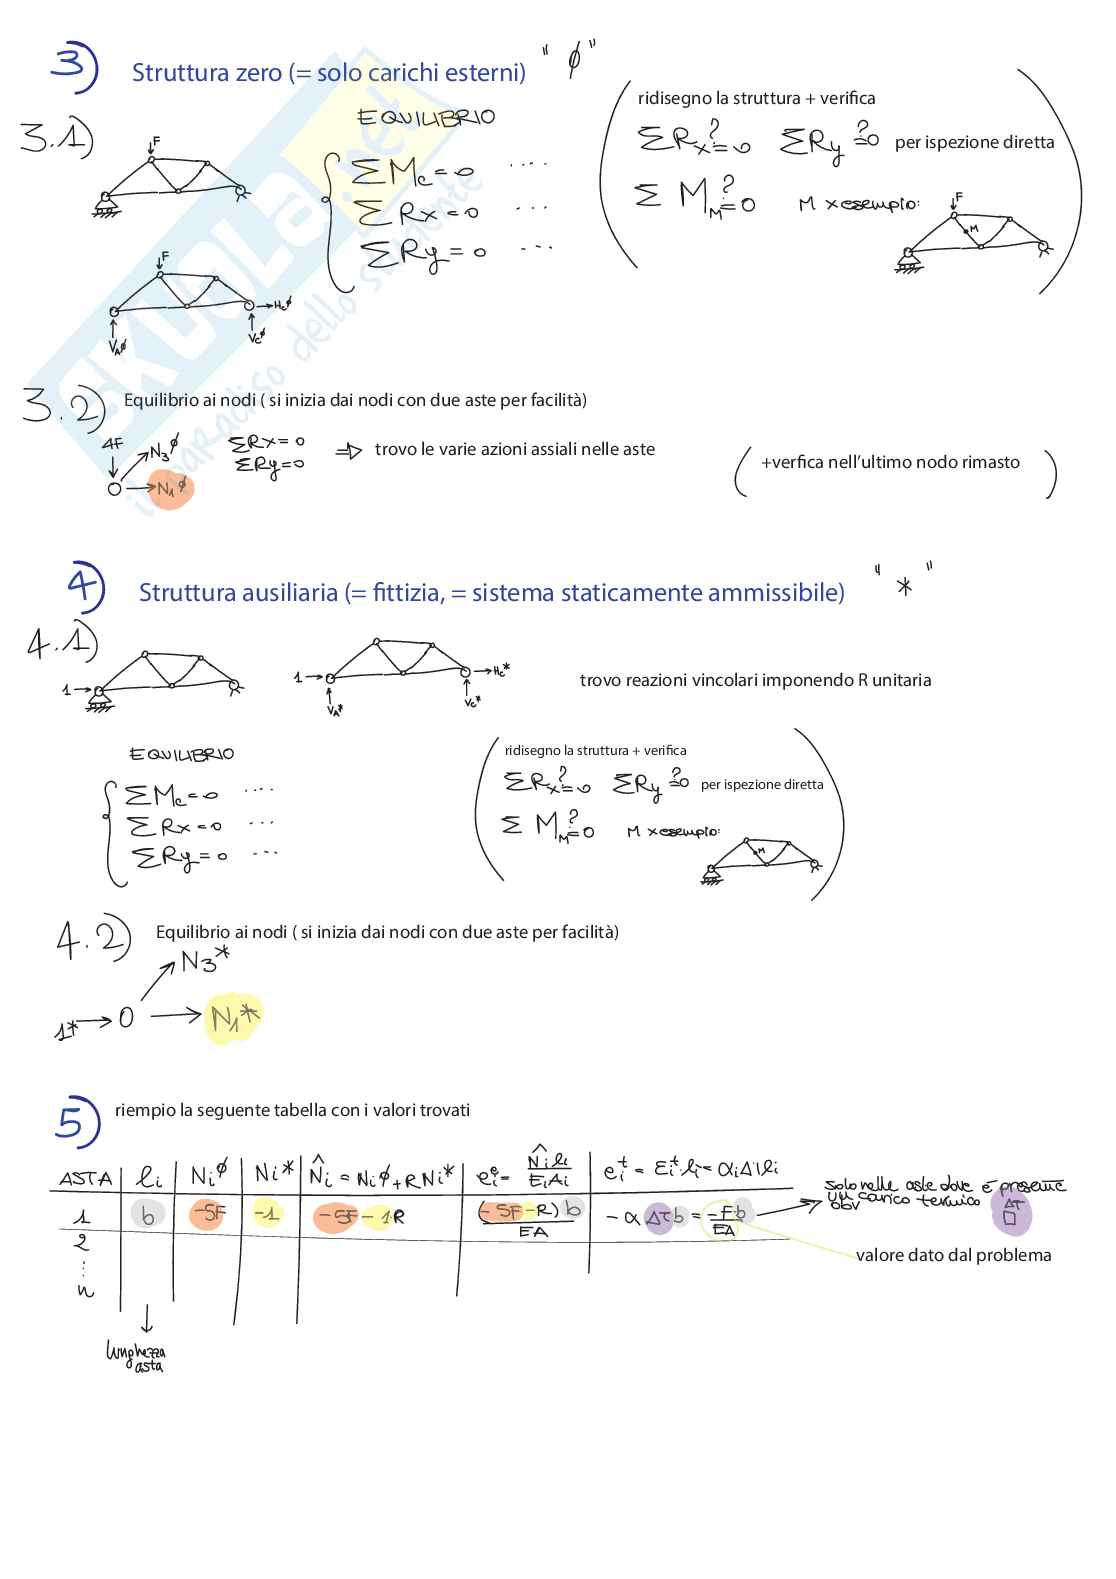 3)
Struttura zero (= solo carichi esterni) " ø "
3.1)
F
EQUILIBRIO
ΣMc=0 ....
ΣRx=0 ...
ΣRy=0 ...
ridisegno la struttura + verifica
ΣRx ?= 0 ΣRy ?= 0 per ispezione diretta
ΣM_M ?= 0 M x esempio:
F
M
F
VAø
Vcø
Hcø
SKUOLA.net
il paradiso dello studente
3.2)
Equilibrio ai nodi ( si inizia dai nodi con due aste per facilità)
4F
N3ø
N1ø
ΣRx=0
ΣRy=0
⇒ trovo le varie azioni assiali nelle aste
( +verfica nell'ultimo nodo rimasto )
4)
Struttura ausiliaria (= fittizia, = sistema staticamente ammissibile) " * "
4.1)
1
1
VA*
Vc*
Hc*
trovo reazioni vincolari imponendo R unitaria
EQUILIBRIO
ΣMc=0 ....
ΣRx=0 ...
ΣRy=0 ...
ridisegno la struttura + verifica
ΣRx ?= 0 ΣRy ?= 0 per ispezione diretta
ΣM_M ?= 0 M x esempio:
M
4.2)
Equilibrio ai nodi ( si inizia dai nodi con due aste per facilità)
N3*
1* → O → N1*
5)
riempio la seguente tabella con i valori trovati
ASTA | li | Niø | Ni* | N̂i = Niø + R Ni* | ei^e = N̂i li / EiAi | ei^t = εi^t·li = αi ΔT li
1 | b | -5F | -1 | -5F - 1R | (-5F - R) b / EA | - α ΔT b = -F·b / EA
solo nelle aste dove è presente
un carico termico
obv
ΔT
2
...
n
valore dato dal problema
lunghezza
asta